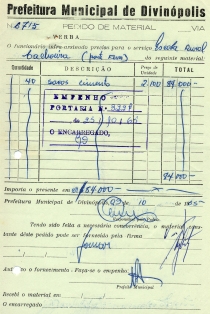 Prefeitura Municipal de Divinópolis
N.º 2715 PEDIDO DE MATERIAL VIA
VERBA
O funcionário infra-assinado precisa para o serviço Escola Rural
Cachoeira do seguinte material:
Quantidade DISCRIMINAÇÃO Preço da Unidade TOTAL
40 sacos cimento 2.100 84.000
EMPENHO
PORTARIA N.º
O ENCARREGADO,
84.000
Importa o presente em 84.000
Prefeitura Municipal de Divinópolis, 10
Tendo sido feita a necessária conferência, o material cons-
tante dêste pedido pode ser fornecido pela firma
Autorizo o fornecimento - Faça-se o empenho.
Prefeito Municipal
Recebi o material em
O encarregado